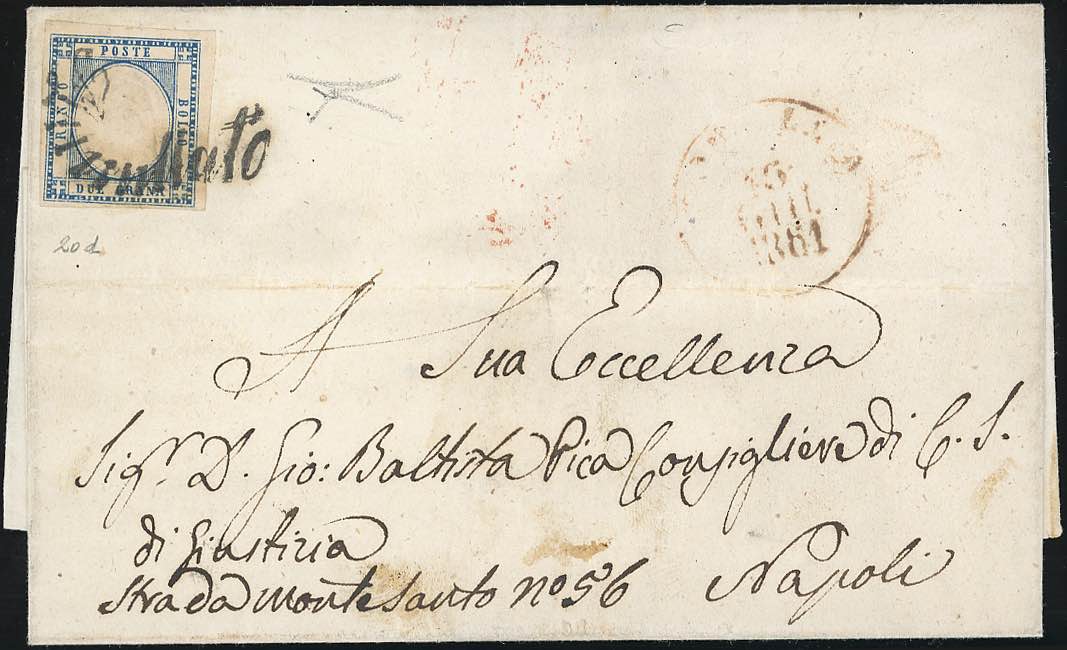 POSTE
FRANCO
BOLLO
DUE GRANA
20d
GIU
1861
A Sua Eccellenza
Sigr. D. Gio: Battista Pica Consigliere di C. S.
di Giustizia
Strada Monte Santo no 56 Napoli